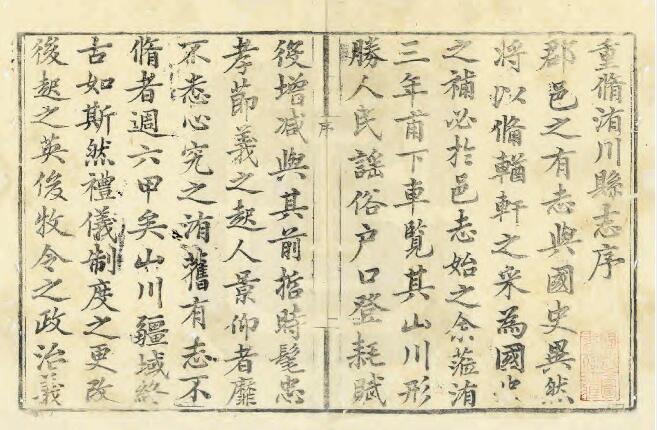 重脩洧川縣志序
郡邑之有志與國史異然
將以俻輶軒之采為國史
之補必於邑志始之余蒞洧
三年甫下車覽其山川形
勝人民謠俗户口登耗賦
序
役增減與其前哲時髦忠
孝節義之起人景仰者靡
不悉心究之洧舊有志不
脩者週六甲矣山川疆域終
古如斯然禮儀制度之更改
後起之英俊牧令之政治義